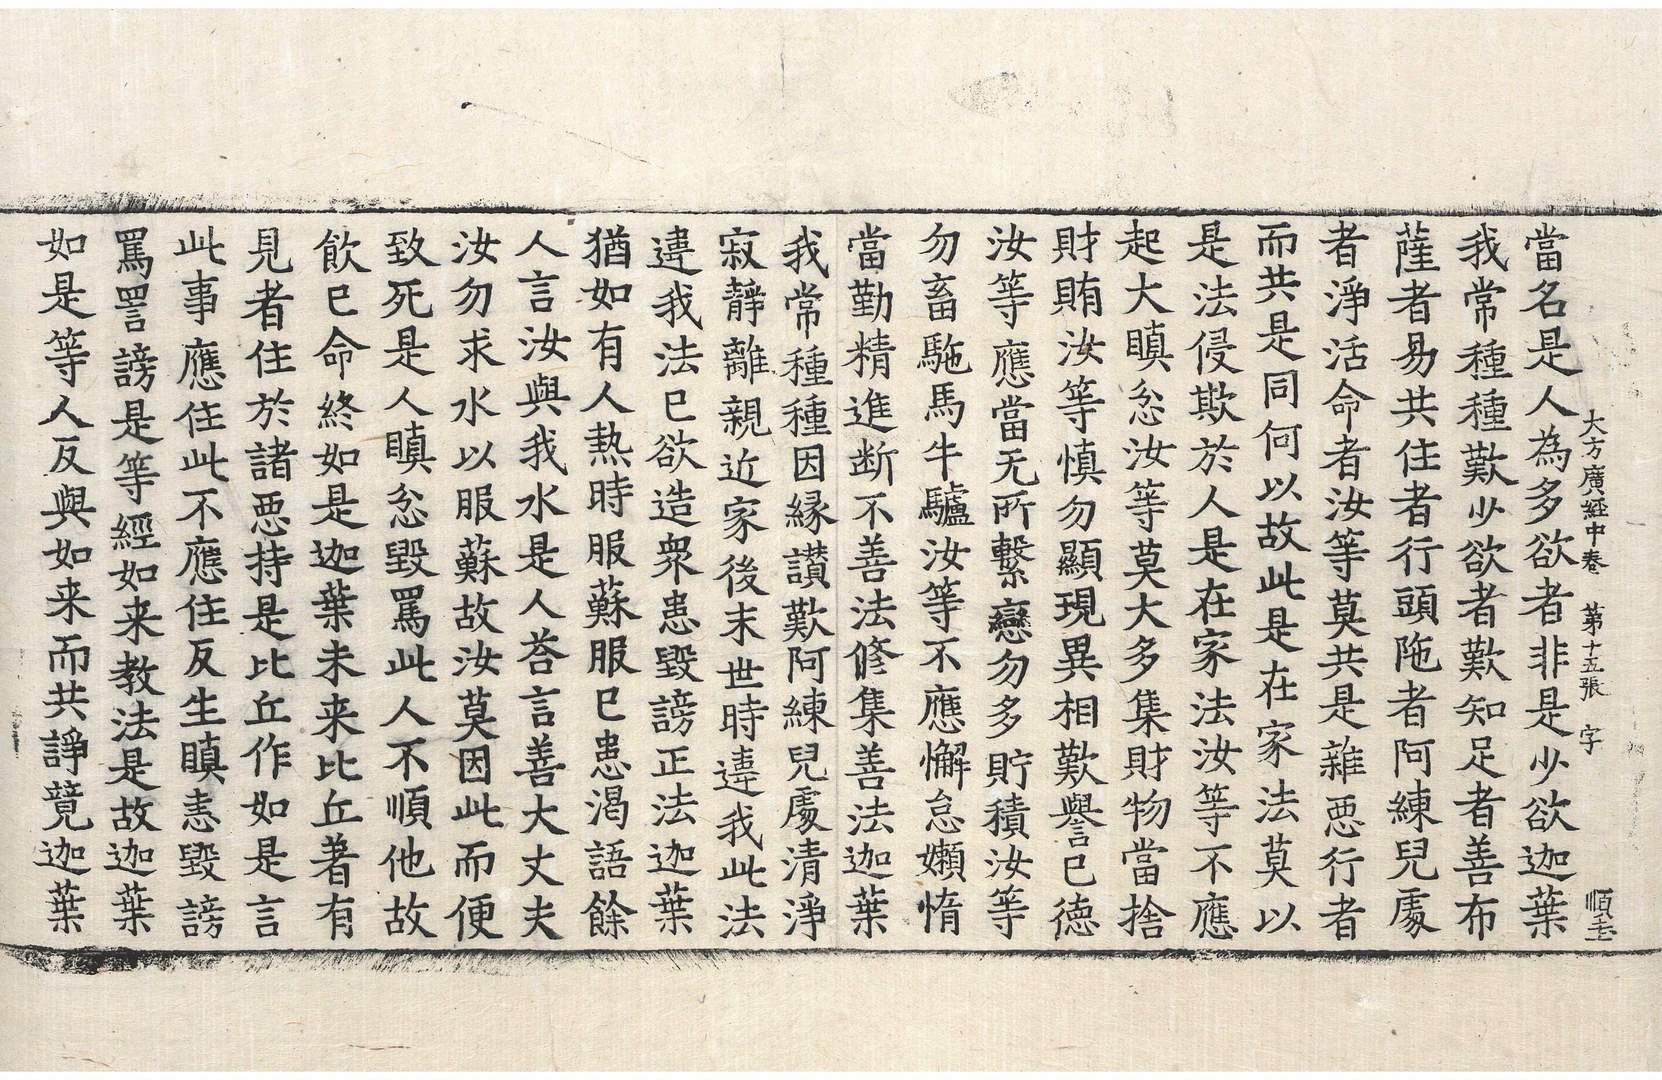 大方廣経中卷　第十五張　字　順
當名是人為多欲者非是少欲迦葉
我常種種歎少欲者歎知足者善布
薩者易共住者行頭陁者阿練兒處
者淨活命者汝等莫共是雜惡行者
而共是同何以故此是在家法莫以
是法侵欺於人是在家法汝等不應
起大瞋忿汝等莫大多集財物當捨
財賄汝等慎勿顯現異相歎譽已德
汝等應當无所繫戀勿多貯積汝等
勿畜駞馬牛驢汝等不應懈怠嬾惰
當勤精進断不善法修集善法迦葉
我常種種因緣讃歎阿練兒處清淨
寂靜離親近家後末世時違我此法
違我法已欲造衆患毀謗正法迦葉
猶如有人熱時服蘇服已患渴語餘
人言汝與我水是人荅言善大丈夫
汝勿求水以服蘇故汝莫因此而便
致死是人瞋忿毀罵此人不順他故
飲已命終如是迦葉未来比丘著有
見者住於諸惡持是比丘作如是言
此事應住此不應住反生瞋恚毀謗
罵詈謗是等經如来教法是故迦葉
如是等人反與如来而共諍競迦葉